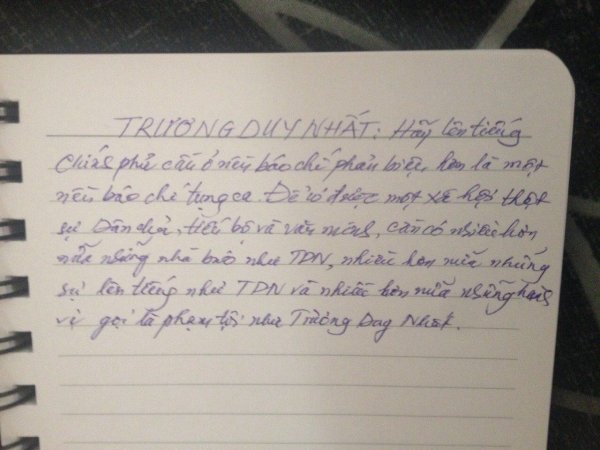 TRƯƠNG DUY NHẤT: Hãy lên tiếng
Chính phủ cần ở nền báo chí phản biện, hơn là một
nền báo chí tụng ca. Để có được một xã hội thật
sự Dân chủ, tiến bộ và văn minh, cần có nhiều hơn
nữa những nhà báo như TDN, nhiều hơn nữa những
sự lên tiếng như TDN và nhiều hơn nữa những hành
vi gọi là phạm tội như Trương Duy Nhất.